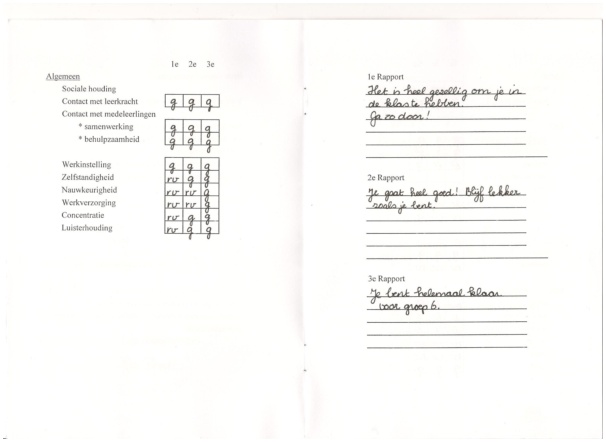 1e 2e 3e
Algemeen
Sociale houding
Contact met leerkracht g g g
Contact met medeleerlingen
* samenwerking g g g
* behulpzaamheid g g g
Werkinstelling g g g
Zelfstandigheid rv g g
Nauwkeurigheid rv rv g
Werkverzorging rv rv g
Concentratie rv g g
Luisterhouding rv g g
1e Rapport
Het is heel gezellig om je in
de klas te hebben.
Ga zo door!
2e Rapport
Je gaat heel goed! Blijf lekker
zoals je bent.
3e Rapport
Je bent helemaal klaar
voor groep 6.